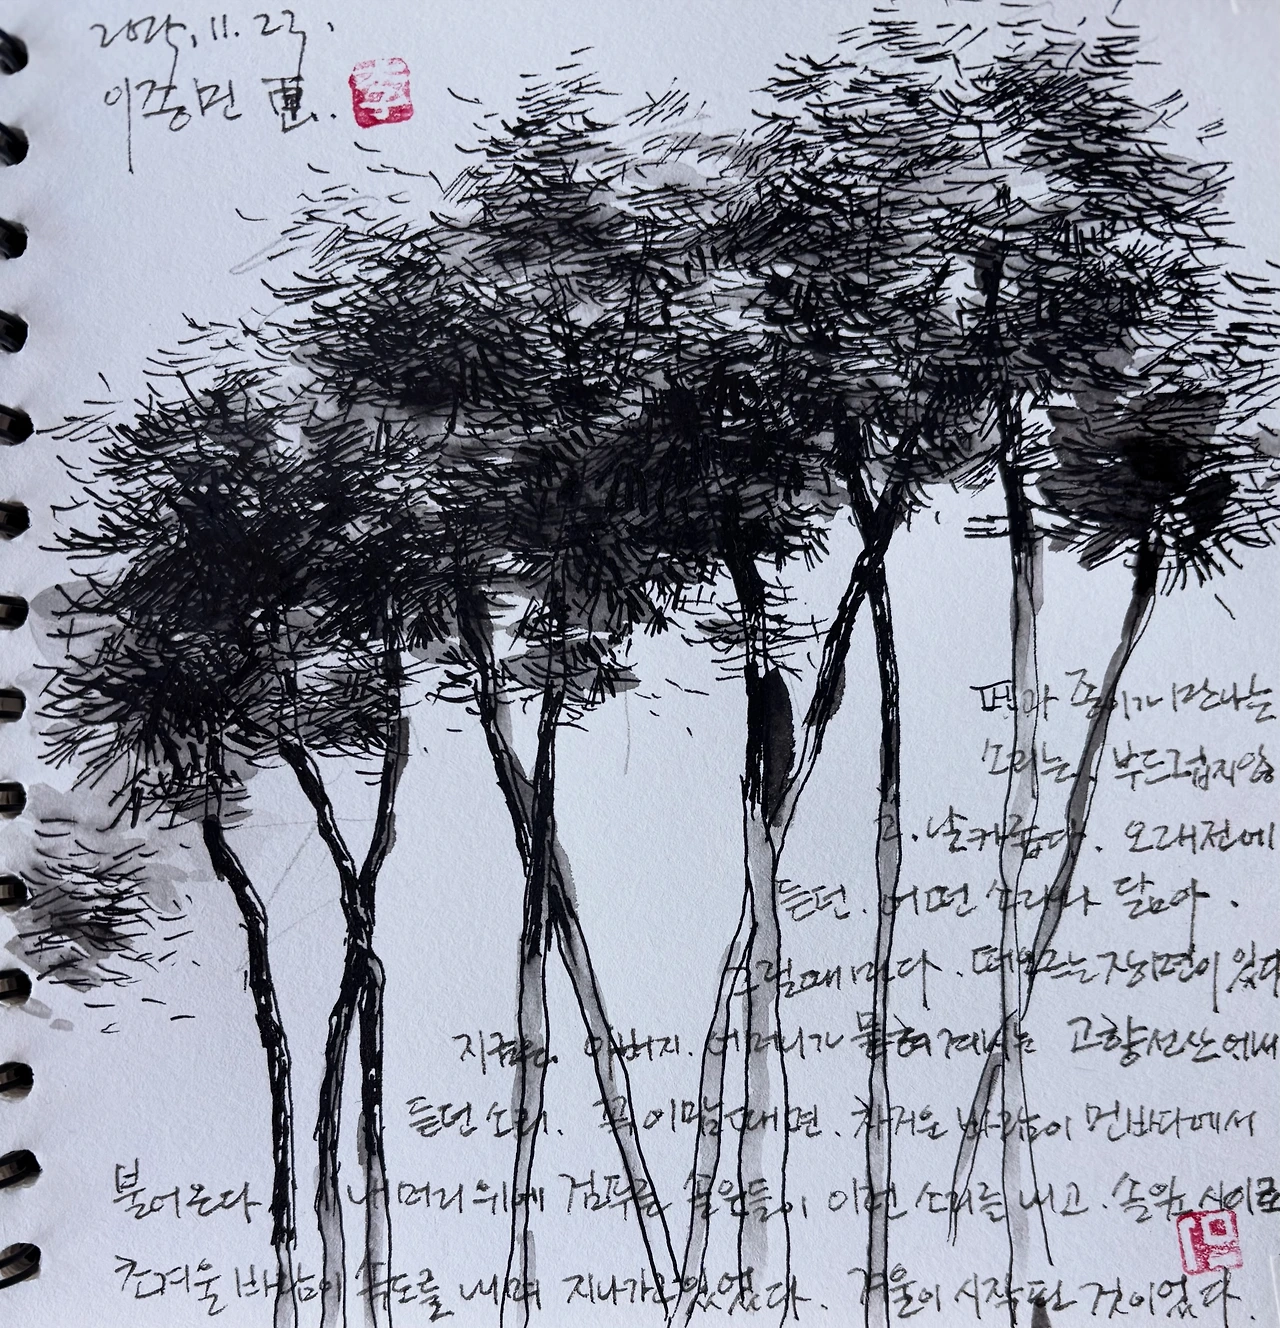 11. 23.
이종민 画.
펜과 종이가 만나는
소리는. 부드럽지 않
고. 날카롭다. 오래전에
듣던. 어떤 소리와 닮아.
그럴때마다. 떠오르는 장면이 있다
지금은. 아버지. 어머니가 묻혀계시는 고향선산에서
듣던 소리. 꼭 이맘때면. 차거운 바람이 먼바다에서
불어온다. 내 머리 위에 검푸른 이런 소리를 내고. 솔잎 사이로
초겨울 바람이 속도를 내며 지나가고 있었다. 겨울이 시작된 것이었다.